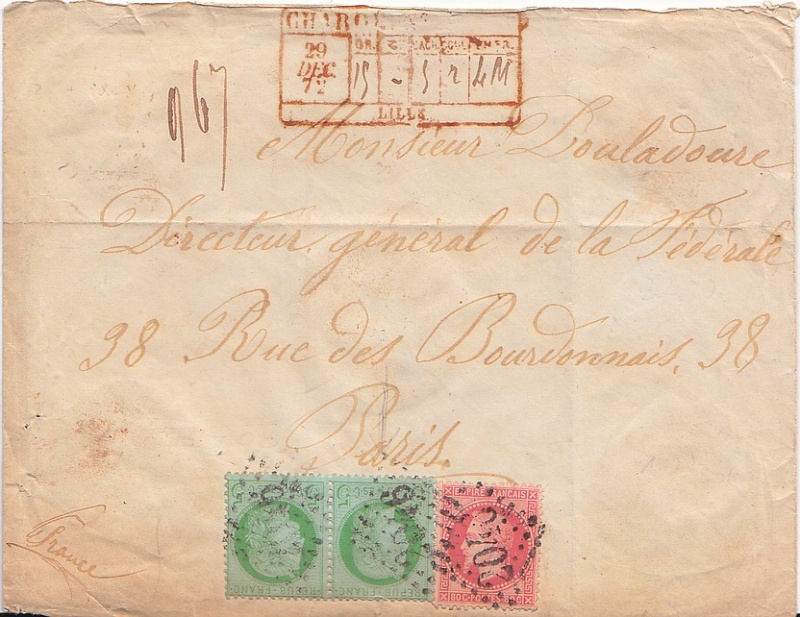 CHARGÉ
29 DEC. 72
15 - 5 2 4M
LILLE
967
Monsieur Douladoure
Directeur général de la Fédérale
38 Rue des Bourdonnais, 38
Paris.
France
EMPIRE FRANÇAIS
REPUB-FRANC REPUB-FRANC
80 C POSTES 80 C